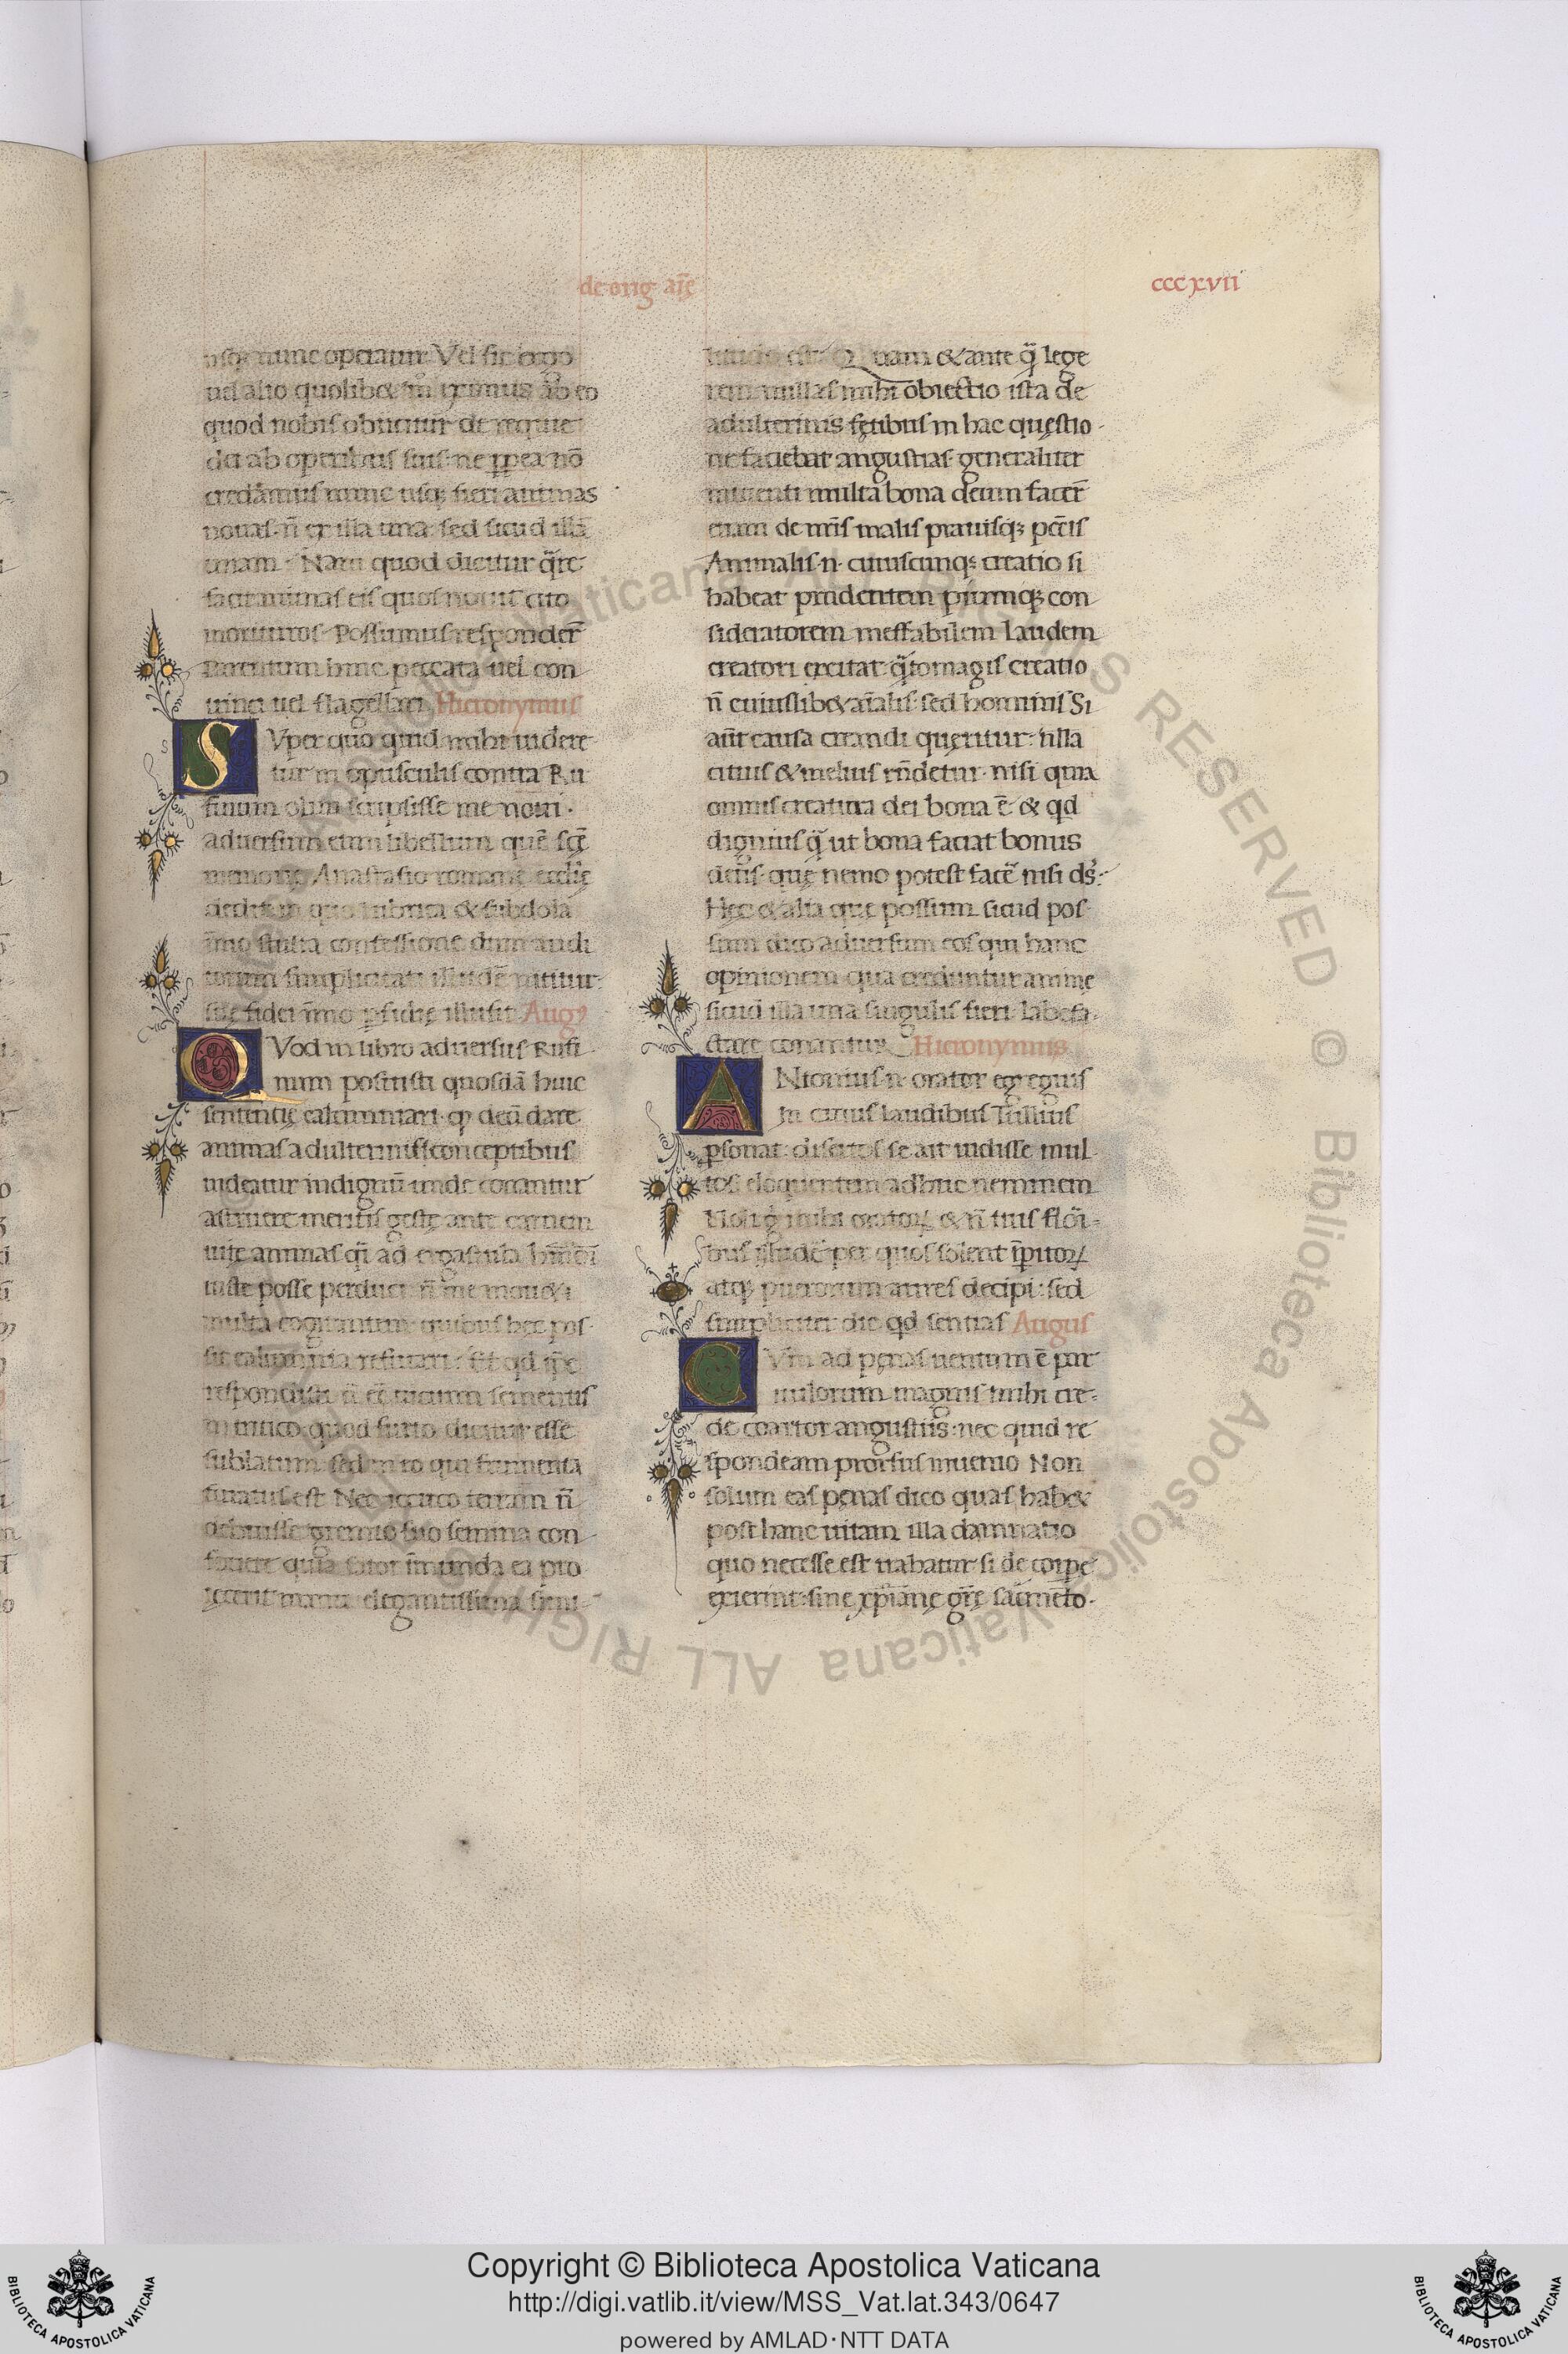 de orig aīę
cccxvii
usq; nunc operatur. Vel si ergo
uel alio quolib& m̄ eximus ab eo
quod nobis obicitur de requie
dei ab operibus suis: ne ꝓpea nō
credamus nunc usq; fieri animas
nouas. n̄ ex illa una. sed sicud illā
unam. Nam quod dicitur q̄re
facit animas eis quos nouit cito
morituros. Possumus respondeř
Parentum hinc peccata uel con
uinci uel flagellari Hieronymus
SVper quo quid mihi uidere
tur in opusculis contra Ru
finum olim scripsisse me noui.
aduersum eum libellum quē scę̄
memorię Anastasio romanę ecclīę
dedit in quo lubrica & subdola
īmo stulta confessione dum audi
torum simplicitati illudē nititur:
suę fidei īmo ꝑfidię illusit. Augꝰ
QVod in libro aduersus Rufi
num posuisti quosdā huic
sententię calumniari. ꝙ deū dare
animas adulterinis conceptibus
uideatur indignū unde conantur
astruere meritis gestę ante carnem
uitę animas q̄i ad ergastula
iuste posse perduci. n̄ me mou&
multa cogitantem quibus hęc pos
sit calumnia refutari. Et qd ip̄e
respondisti n̄ eē uicium sementis
in tritico. quod furto dicitur esse
sublatum. sed in eo qui frumenta
furatus est. Nec iccirco terram n̄
debuisse gremio suo semina con
fouere quia sator īmunda ea pro
iecerit manu elegantissima simi-
litudo est. Quam & ante q̄ lege
rem nullas mihi obiectio ista de
adulterinis fętibus in hac questio-
ne faciebat angustias generaliter
intuenti multa bona deum faceř
etiam de nr̄is malis prauisq; pcc̄is
Animalis. n. cuiuscunq; creatio si
habeat prudentem piumq; con
sideratorem ineffabilem laudem
creatori excitat. q̄tomagis creatio
n̄ cuiuslib& aīalis. sed hominis Si
aūt causa creandi queritur: nlla
citius & melius rn̄detur. nisi quia
omnis creatura dei bona ē. & qd
dignius q̄ ut bona faciat bonus
deus. que nemo potest facē nisi ds.
Hęc & alia que possum sicud pos
sum dico aduersum eos qui hanc
opinionem qua creduntur animę
sicud illa una singulis fieri labefa-
ctare conantur. Hieronymus
ANtonius. n. orator egregius
In cuius laudibus Tullius
ꝑsonat. disertos se ait uidisse mul
tos. eloquentem adhuc neminem
Noli g mihi oratoꝝ & n̄ tuis flori-
bus illudē per quos solent īpitoꝝ
atq; puerorum aures decipi: sed
simpliciter dic qd sentias Augus
CVm ad penas uentum ē par
uulorum magnis mihi cre-
de coartor angustiis: nec quid re
spondeam prorsus inuenio Non
solum eas pęnas dico quas hab&
post hanc uitam illa damnatio
quo necesse est trahatur si de corpe
exierint: sine xp̄ianę gr̄ę sacmēto.
Copyright © Biblioteca Apostolica Vaticana
http://digi.vatlib.it/view/MSS_Vat.lat.343/0647
powered by AMLAD·NTT DATA
BIBLIOTECA APOSTOLICA VATICANA
BIBLIOTECA APOSTOLICA VATICANA